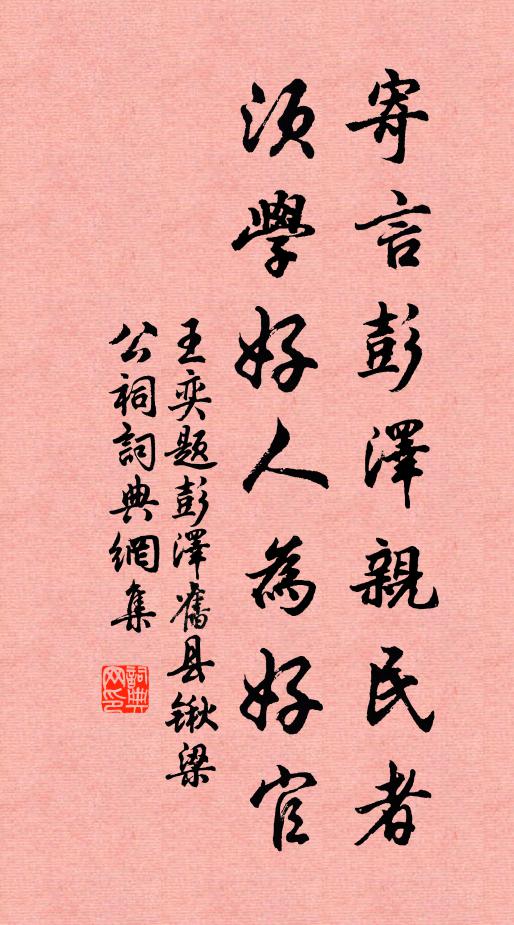 寄言彭澤親民者
須學好人為好官
王奕题彭澤舊县锹梁
公祠詞典網集
詞典网印